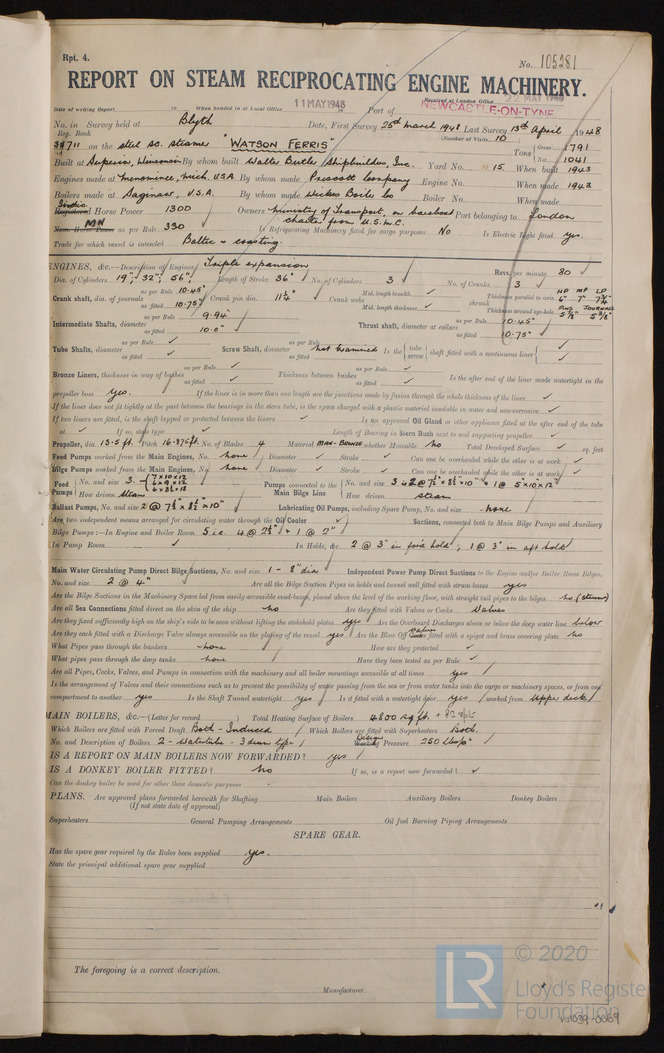 Rpt. 4.
No. 105281
REPORT ON STEAM RECIPROCATING ENGINE MACHINERY.
Received at London Office 22 MAY 1948
Date of writing Report 19 When handed in at Local Office 11 MAY 1948 Port of NEWCASTLE-ON-TYNE
No. in Survey held at Blyth Date, First Survey 25th March 1948 Last Survey 13th April 1948
Reg. Book (Number of Visits 10)
38711 on the steel sc. steamer "WATSON FERRIS" Tons Gross 1791 Net 1041
Built at Superior, Wisconsin By whom built Walter Butler Shipbuilders, Inc. Yard No. 15 When built 1943
Engines made at Menominee, Mich. U.S.A By whom made Prescott Company Engine No. When made 1943
Boilers made at Saginaw, U.S.A. By whom made Wickes Boiler Co Boiler No. When made
Indic. Registered Horse Power 1300 Owners Ministry of Transport, on bareboat charter from U.S.M.C. Port belonging to London
MN Nom. Horse Power as per Rule 330 Is Refrigerating Machinery fitted for cargo purposes No Is Electric Light fitted yes.
Trade for which vessel is intended Baltic & coasting.
ENGINES, &c.—Description of Engines Triple expansion Revs. per minute 80
Dia. of Cylinders 19", 32", 56", Length of Stroke 36" No. of Cylinders 3 No. of Cranks 3
Crank shaft, dia. of journals as per Rule 10.45" as fitted 10.75" Crank pin dia. 11¼" Crank webs Mid. length breadth Mid. length thickness shrunk Thickness parallel to axis HP 6" MP 7" LP 7¾" Thickness around eye-hole PINS 5⅞" JOURNALS 5⅜"
Intermediate Shafts, diameter as per Rule 9.94" as fitted 10.0" Thrust shaft, diameter at collars as per Rule 10.45" as fitted 10.75"
Tube Shafts, diameter as per Rule as fitted Screw Shaft, diameter as per Rule as fitted not examined Is the tube screw shaft fitted with a continuous liner
Bronze Liners, thickness in way of bushes as per Rule as fitted Thickness between bushes as per Rule as fitted Is the after end of the liner made watertight in the
propeller boss yes. If the liner is in more than one length are the junctions made by fusion through the whole thickness of the liner
If the liner does not fit tightly at the part between the bearings in the stern tube, is the space charged with a plastic material insoluble in water and non-corrosive
If two liners are fitted, is the shaft lapped or protected between the liners Is an approved Oil Gland or other appliance fitted at the after end of the tube
If so, state type Length of Bearing in Stern Bush next to and supporting propeller
Propeller, dia. 13.5 ft. Pitch 16.875 ft. No. of Blades 4 Material Man-Bronze whether Moveable no Total Developed Surface sq. feet
Feed Pumps worked from the Main Engines, No. none Diameter Stroke Can one be overhauled while the other is at work
Bilge Pumps worked from the Main Engines, No. none Diameter Stroke Can one be overhauled while the other is at work
Feed Pumps No. and size 3. How driven Steam Pumps connected to the Main Bilge Line No. and size How driven steam
Ballast Pumps, No. and size 2 @ 7½" x 8½" x 10" Lubricating Oil Pumps, including Spare Pump, No. and size none
Are two independent means arranged for circulating water through the Oil Cooler Suctions, connected both to Main Bilge Pumps and Auxiliary
Bilge Pumps:—In Engine and Boiler Room 5 i.e. 4 @ 2½" & 1 @ 2"
In Pump Room In Holds, &c. 2 @ 3" in for'd hold, 1 @ 3" in aft hold
Main Water Circulating Pump Direct Bilge Suctions, No. and size 1 - 8" dia Independent Power Pump Direct Suctions to the Engine and/or Boiler Room Bilges,
No. and size 2 @ 4" Are all the Bilge Suction Pipes in holds and tunnel well fitted with strum-boxes yes
Are the Bilge Suctions in the Machinery Space led from easily accessible mud-boxes, placed above the level of the working floor, with straight tail pipes to the bilges no (strums)
Are all Sea Connections fitted direct on the skin of the ship no Are they fitted with Valves or Cocks Valves
Are they fixed sufficiently high on the ship's side to be seen without lifting the stokehold plates yes Are the Overboard Discharges above or below the deep water line below
Are they each fitted with a Discharge Valve always accessible on the plating of the vessel yes Are the Blow Off Valves fitted with a spigot and brass covering plate no
What Pipes pass through the bunkers none How are they protected
What pipes pass through the deep tanks none Have they been tested as per Rule
Are all Pipes, Cocks, Valves, and Pumps in connection with the machinery and all boiler mountings accessible at all times yes
Is the arrangement of Valves and their connections such as to prevent the possibility of water passing from the sea or from water tanks into the cargo or machinery spaces, or from one
compartment to another yes Is the Shaft Tunnel watertight yes Is it fitted with a watertight door yes worked from Upper deck
MAIN BOILERS, &c.—(Letter for record ) Total Heating Surface of Boilers 4800 sq ft.
Which Boilers are fitted with Forced Draft Both - Induced Which Boilers are fitted with Superheaters Both.
No. and Description of Boilers 2 - Watertube - 3 drum type Working Pressure 250 lbs/□"
IS A REPORT ON MAIN BOILERS NOW FORWARDED? yes
IS A DONKEY BOILER FITTED? no If so, is a report now forwarded?
Can the donkey boiler be used for other than domestic purposes
PLANS. Are approved plans forwarded herewith for Shafting Main Boilers Auxiliary Boilers Donkey Boilers
(If not state date of approval)
Superheaters General Pumping Arrangements Oil fuel Burning Piping Arrangements
SPARE GEAR.
Has the spare gear required by the Rules been supplied yes.
State the principal additional spare gear supplied
The foregoing is a correct description.
Manufacturer.
LR
© 2020
Lloyd's Register
Foundation
W1039-0069